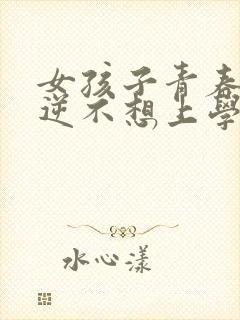 女孩子青春
逆不想上学
水心漾